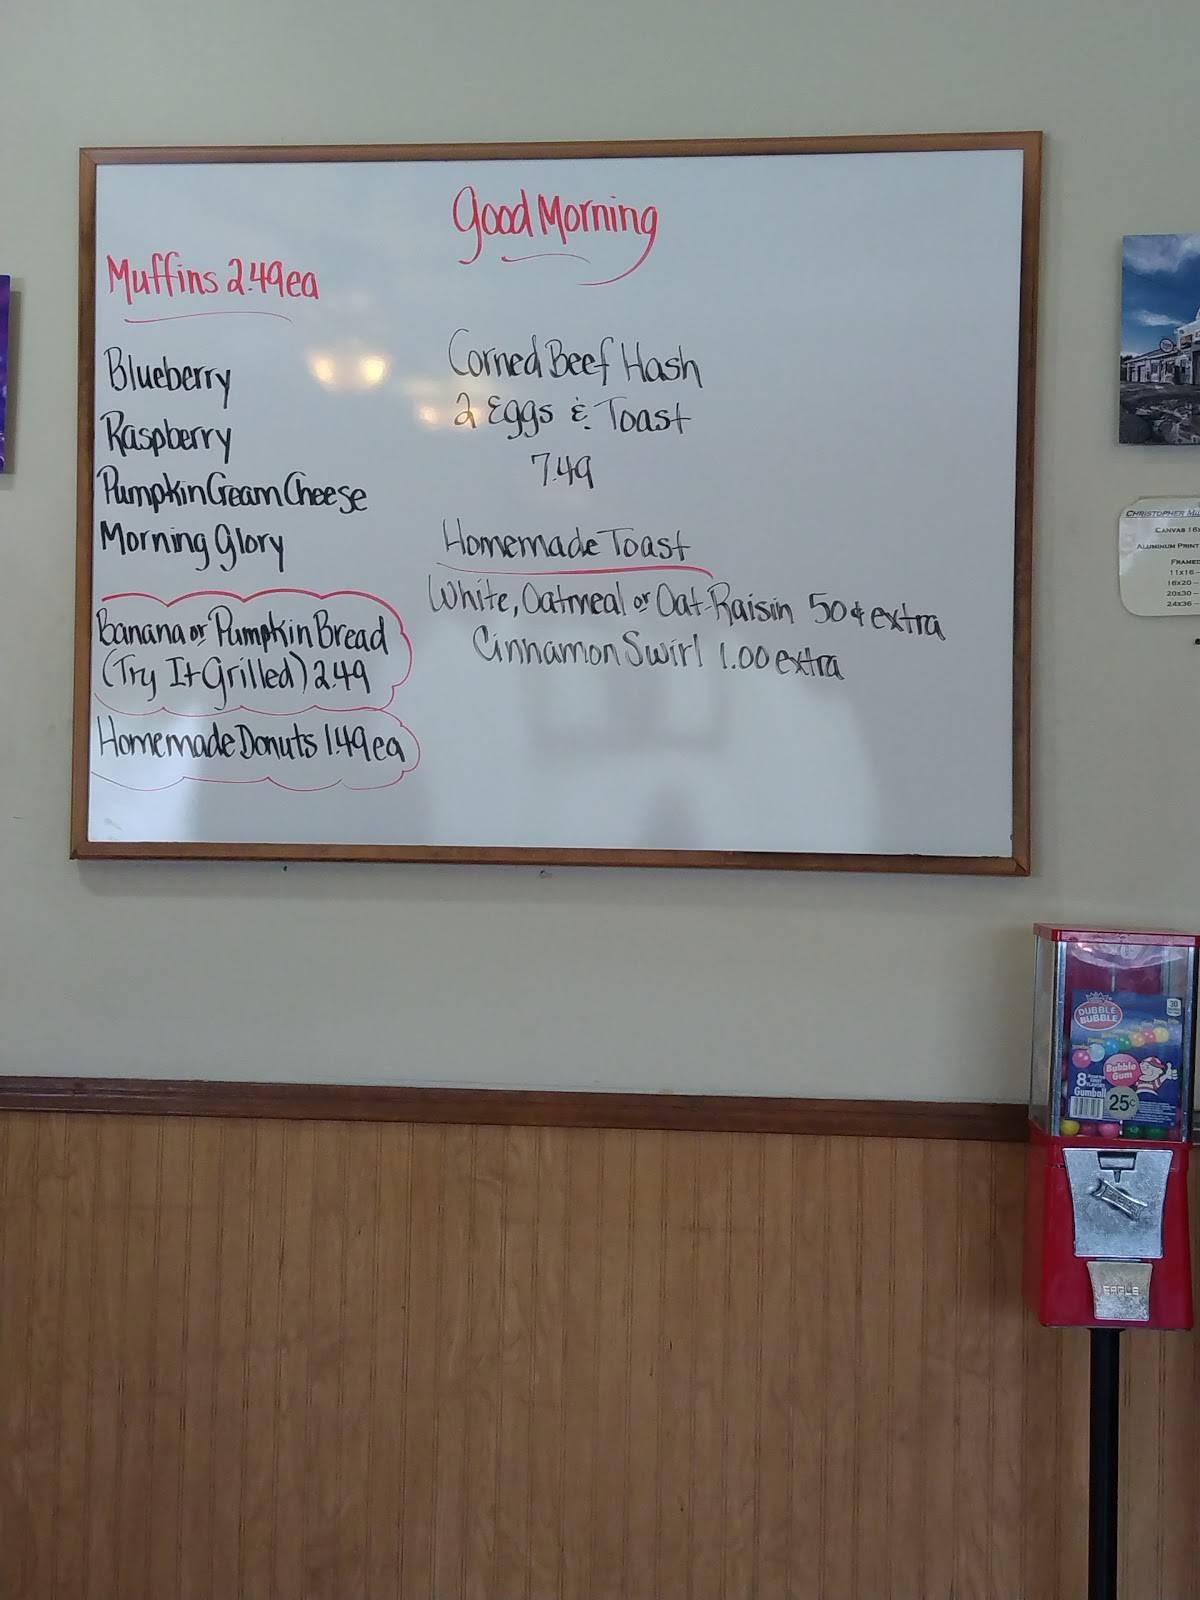 Good Morning
Muffins 2.49 ea
Blueberry
Raspberry
Pumpkin Cream Cheese
Morning Glory
Banana or Pumpkin Bread
(Try It Grilled) 2.49
Homemade Donuts 1.49 ea
Corned Beef Hash
2 Eggs & Toast
7.49
Homemade Toast
White, Oatmeal or Oat-Raisin 50¢ extra
Cinnamon Swirl 1.00 extra
CHRISTOPHER
CANVAS
ALUMINUM PRINT
FRAMED
11x16 -
16x20 -
20x30 -
24x36 -
DUBBLE
BUBBLE
Bubble
Gum
8
Gumball
25¢
EAGLE